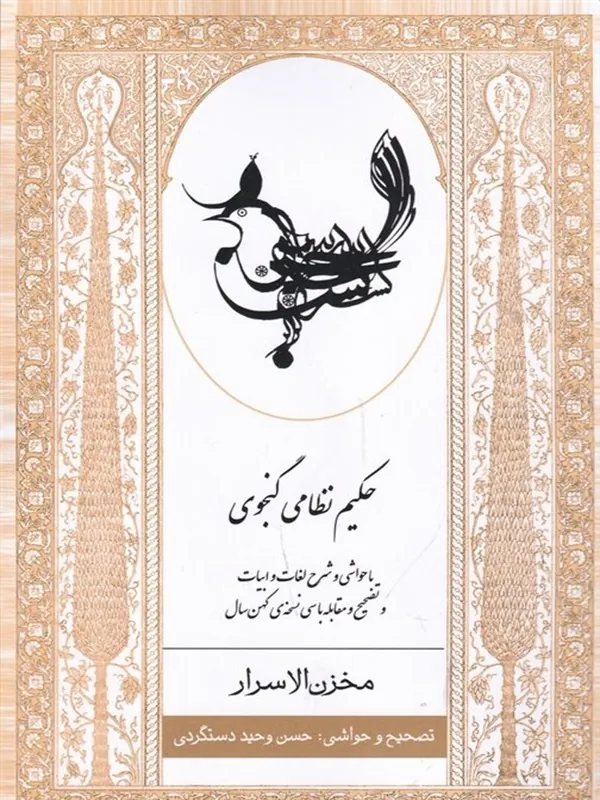 حکیم نظامی گنجوی
با حواشی و شرح لغات و ابیات
و تصحیح و مقابله با سی نسخه‌ی کهن سال
مخزن الاسرار
تصحیح و حواشی: حسن وحید دستگردی